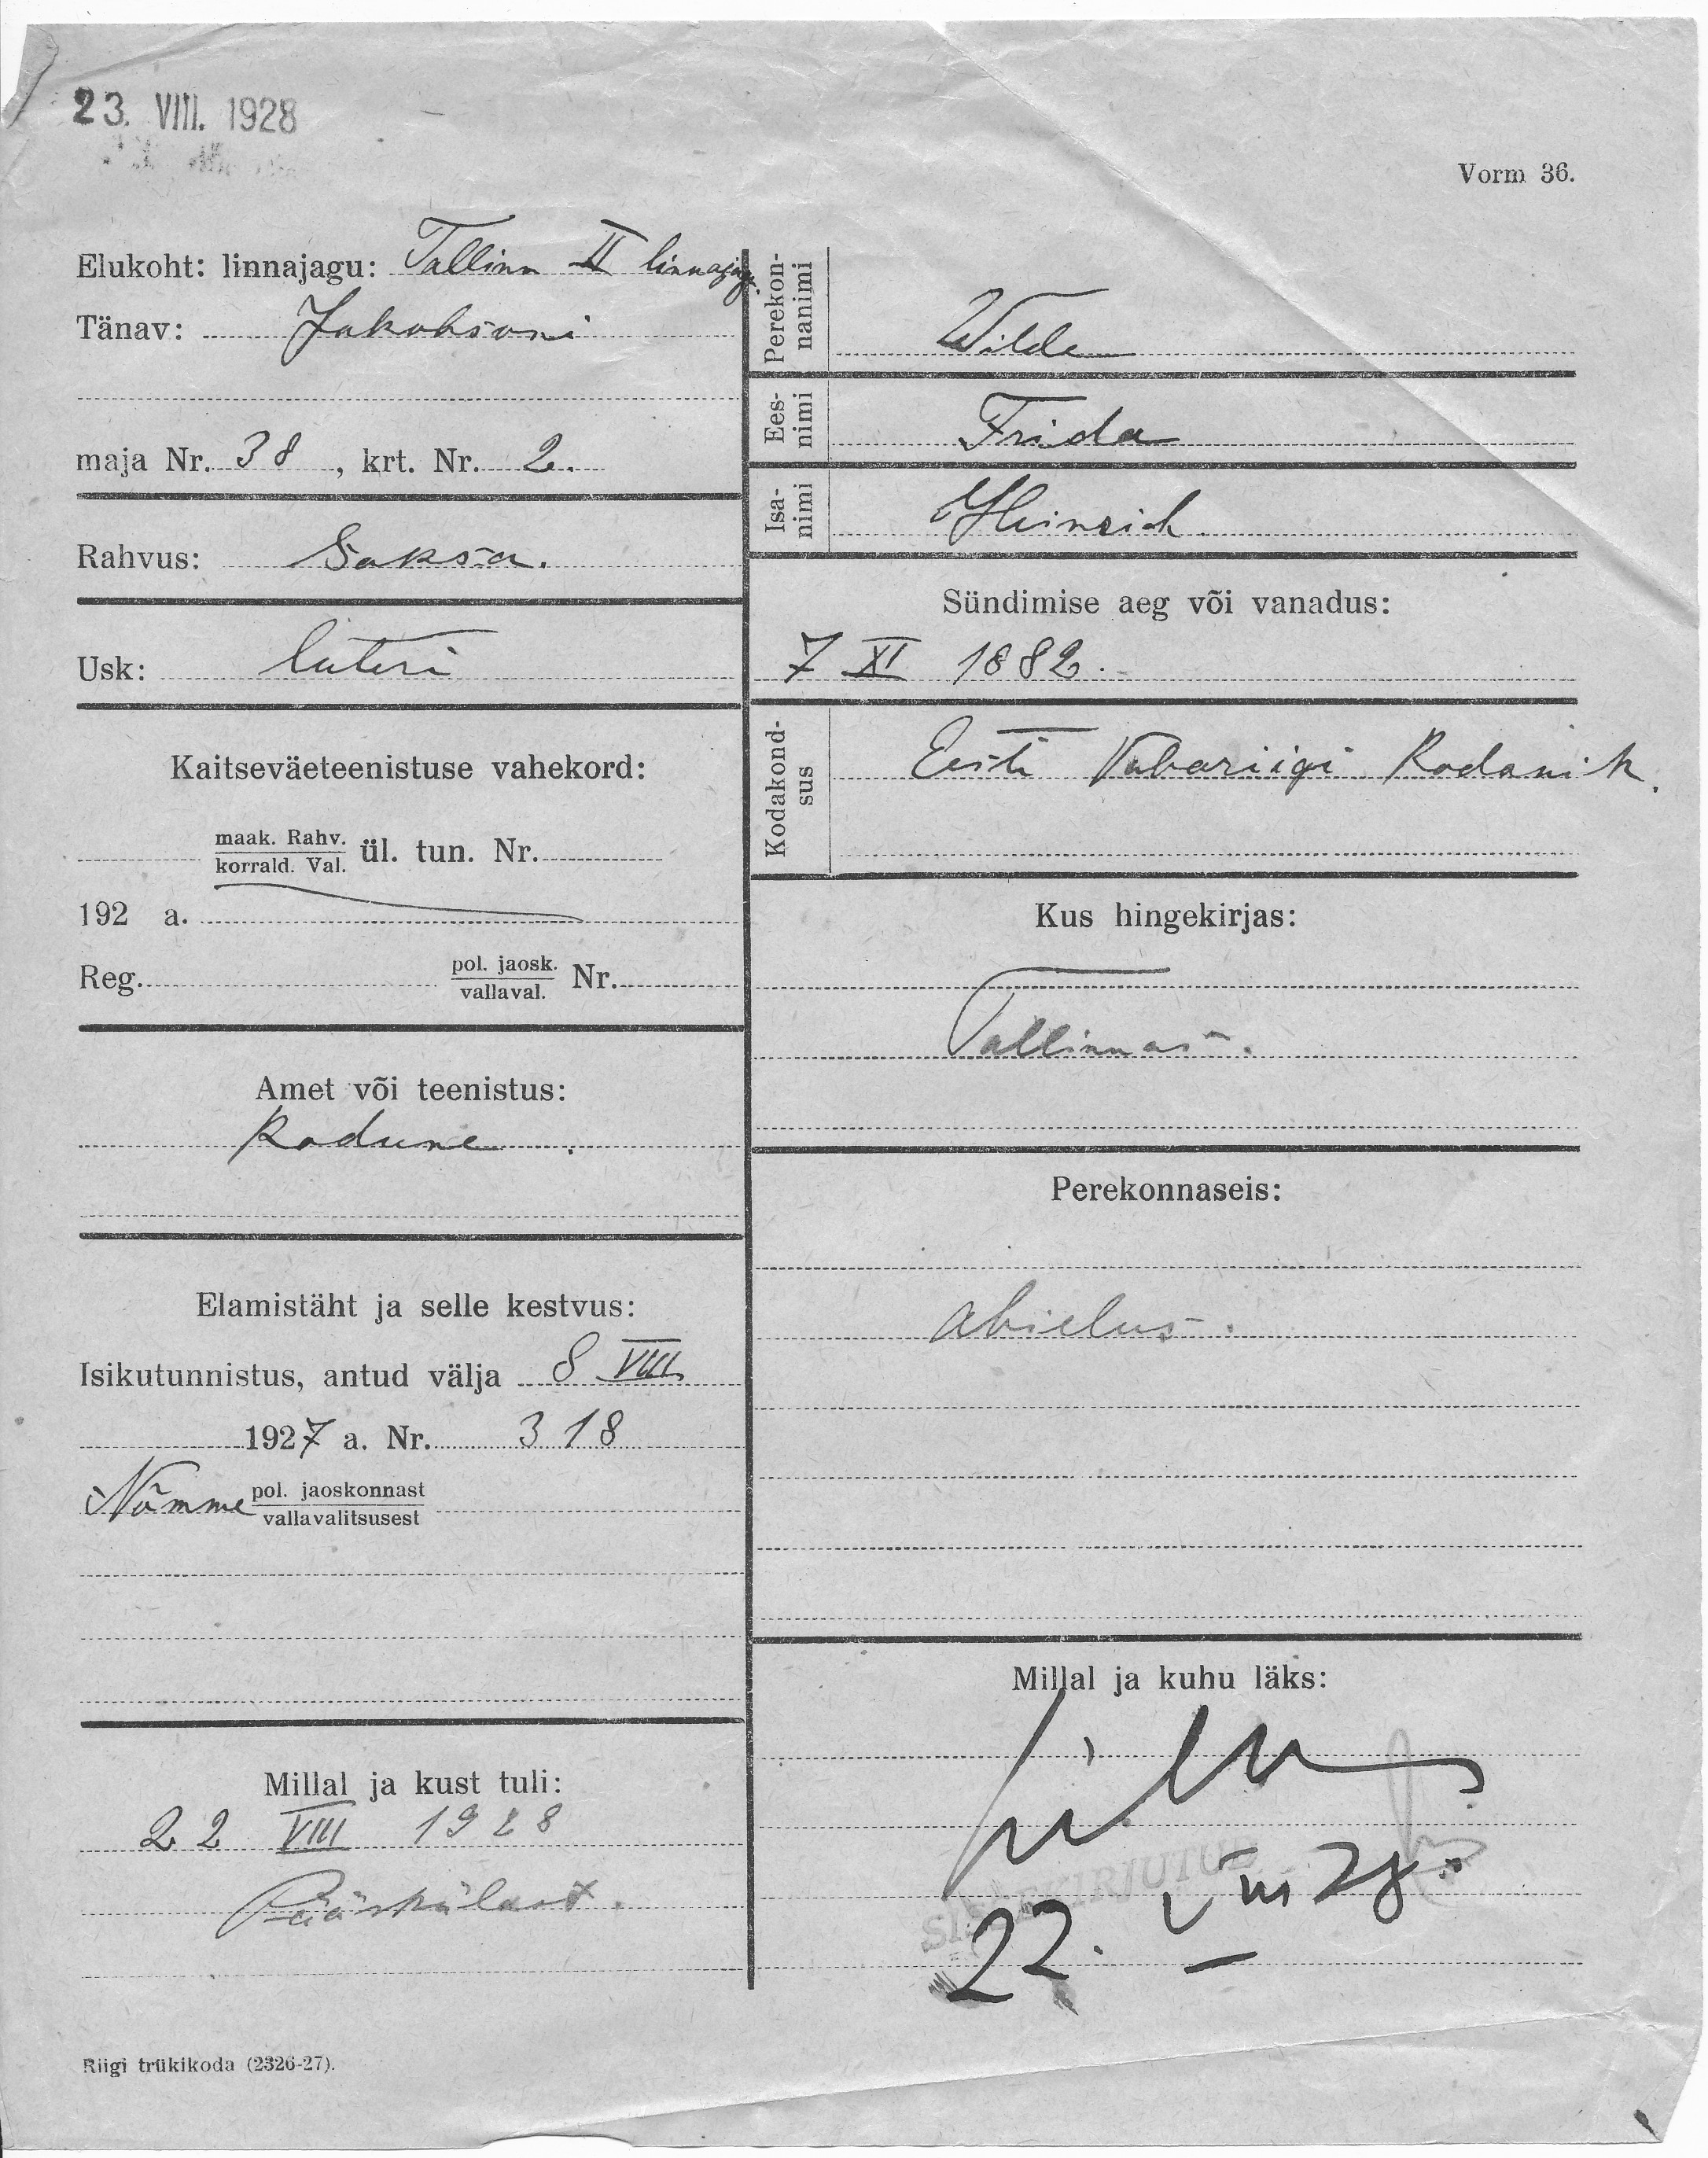 23. VIII. 1928
Vorm 36.
Elukoht: linnajagu: Tallinn II linnajagu
Tänav: Jakobsoni
maja Nr. 38, krt. Nr. 2.
Rahvus: Saksa.
Usk: luteri
Kaitseväeteenistuse vahekord:
maak. Rahv.
korrald. Val. ül. tun. Nr.
192 a.
Reg. pol. jaosk. Nr.
vallaval.
Amet või teenistus:
Kodune.
Elamistäht ja selle kestvus:
Isikutunnistus, antud välja 8 VIII
1927 a. Nr. 318
Nõmme pol. jaoskonnast
vallavalitsusest
Millal ja kust tuli:
22 VIII 1928
Pääskülast.
Perekon-
nanimi
Wilde
Ees-
nimi
Frida
Isa-
nimi
Heinrich
Sündimise aeg või vanadus:
7 XI 1882.
Kodakond-
sus
Eesti Vabariigi Kodanik.
Kus hingekirjas:
Tallinnas.
Perekonnaseis:
abielus.
Millal ja kuhu läks:
SISSEKIRJUTUD
22. VIII 28.
Riigi trükikoda (2326-27).